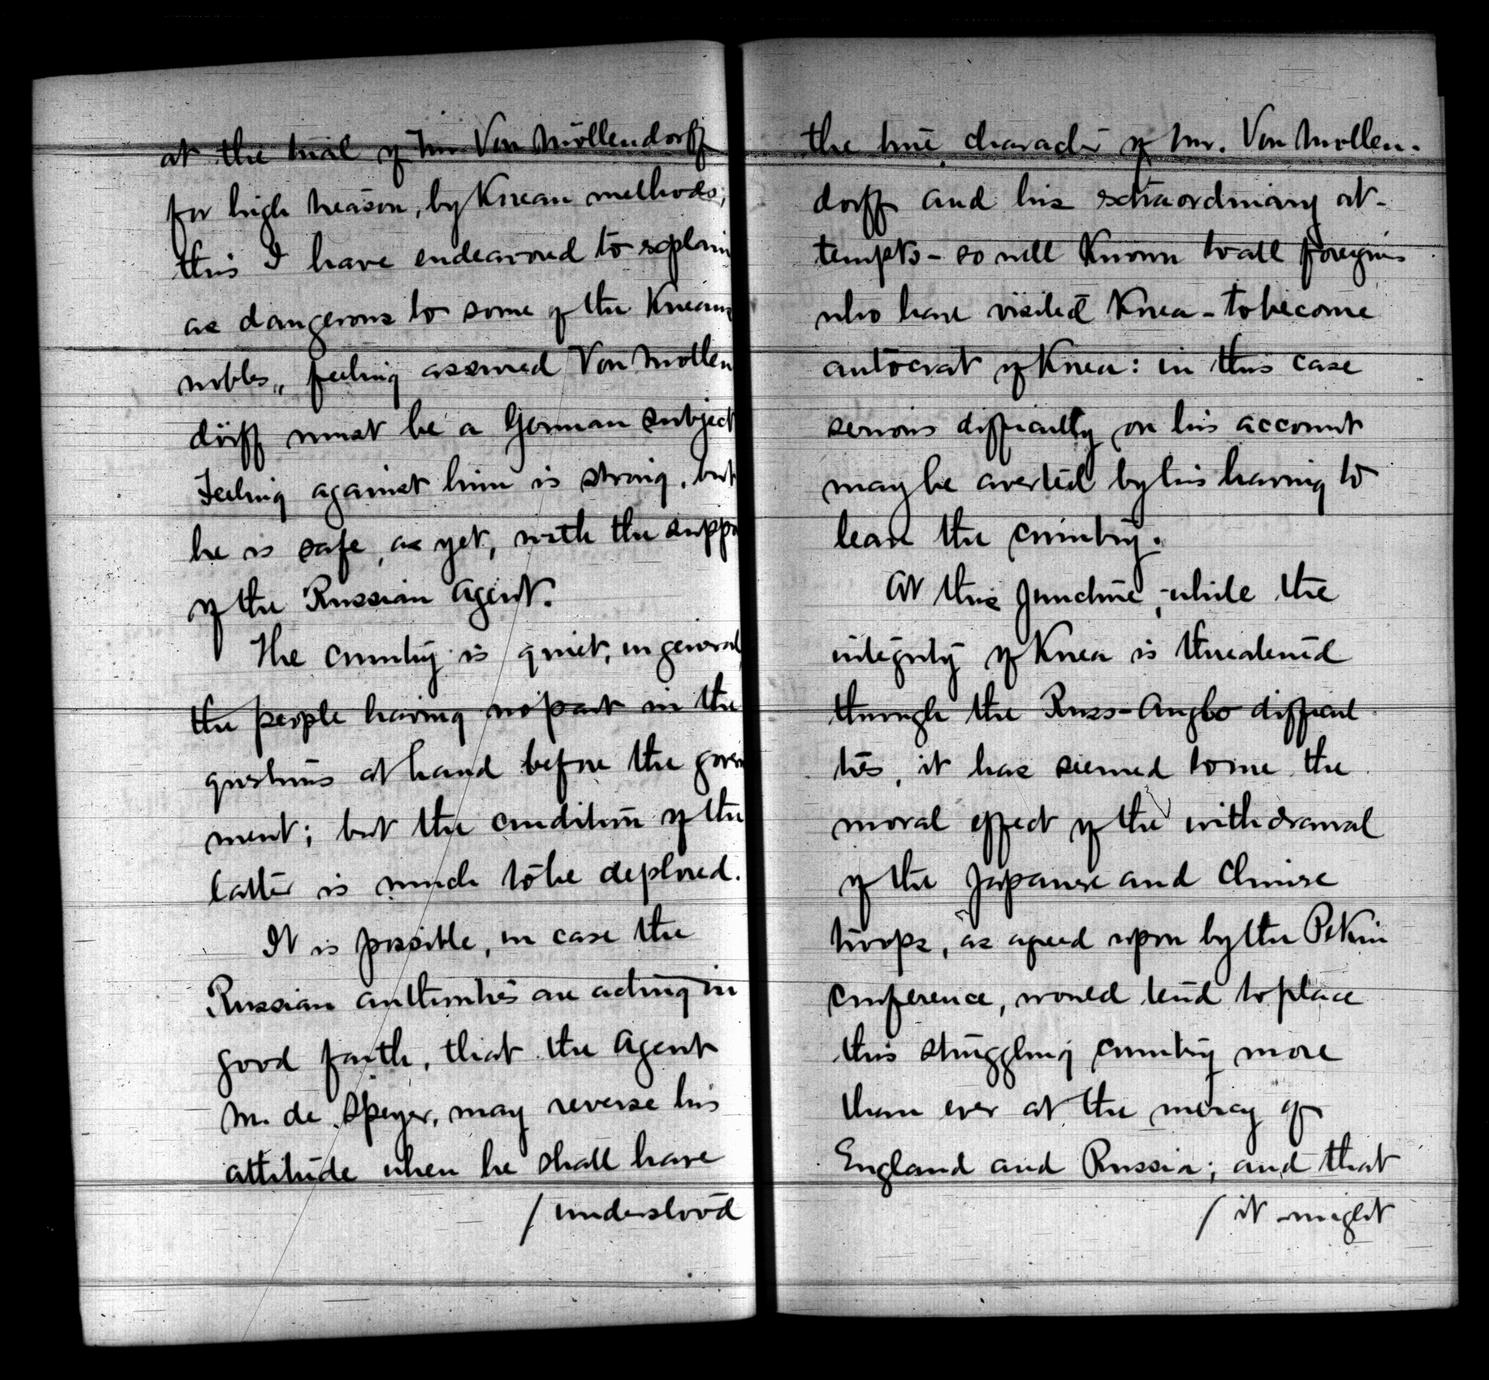 at the trial of Mr. Von Möllendorff
for high treason, by Korean methods;
this I have endeavored to explain
as dangerous to some of the Korean
nobles, feeling assured Von Mollen
dörff must be a German subject
Feeling against him is strong, but
he is safe, as yet, with the suppo
of the Russian Agent.
The country is quiet, in general,
the people having no part in the
questions at hand before the govern
ment; but the condition of the
latter is much to be deplored.
It is possible, in case the
Russian authorities are acting in
good faith, that the Agent
M. de Speyer, may reverse his
attitude when he shall have
/ understood
the true character of Mr. Von Mollen-
dorff and his extraordinary at-
tempts - so well known to all foreigners
who have visited Korea - to become
autocrat of Korea: in this case
serious difficulty on his account
may be averted by his having to
leave the country.
At this juncture, while the
integrity of Korea is threatened
through the Russ-Anglo difficul
ties, it has seemed to me the
moral effect of the withdrawal
of the Japanese and Chinese
troops, as agreed upon by the Pekin
conference, would tend to place
this struggling country more
than ever at the mercy of
England and Russia; and that
/ it might